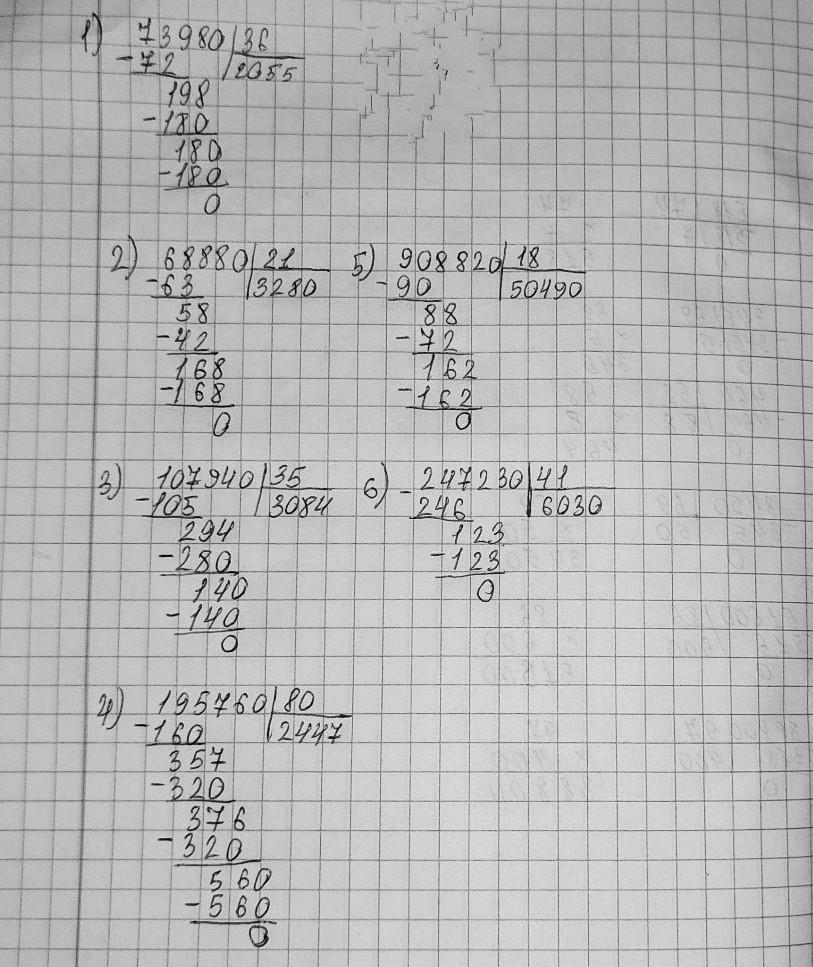 1) 73980 | 36
-72 | 2055
198
-180
180
-180
0
2) 68880 | 21
-63 | 3280
58
-42
168
-168
0
5) 908820 | 18
-90 | 50490
88
-72
162
-162
0
3) 107940 | 35
-105 | 3084
294
-280
140
-140
0
6) -247230 | 41
246 | 6030
123
-123
0
4) 195760 | 80
-160 | 2447
357
-320
376
-320
560
-560
0